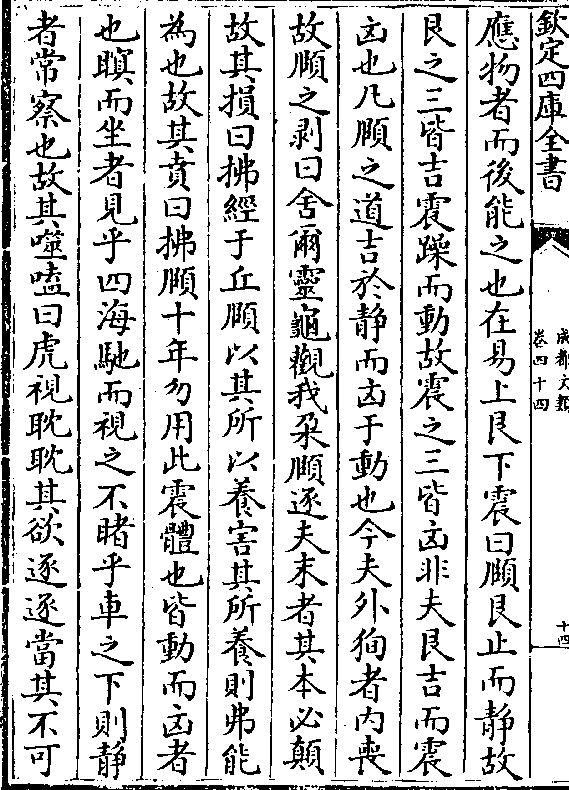 欽定四庫全書
成都文類
卷四十四
十四
應物者而後能之也在易上艮下震曰頤艮止而静故
艮之三皆吉震躁而動故震之三皆凶非夫艮吉而震
凶也凡頤之道吉於静而凶于動也今夫外徇者内喪
故頤之剥曰舍爾靈龜觀我朶頤逐夫末者其本必顛
故其損曰拂經于丘頤以其所以養害其所養則弗能
為也故其賁曰拂頤十年勿用此震體也皆動而凶者
也瞑而坐者見乎四海馳而視之不睹乎車之下則静
者常察也故其噬嗑曰虎視耽耽其欲逐逐當其不可